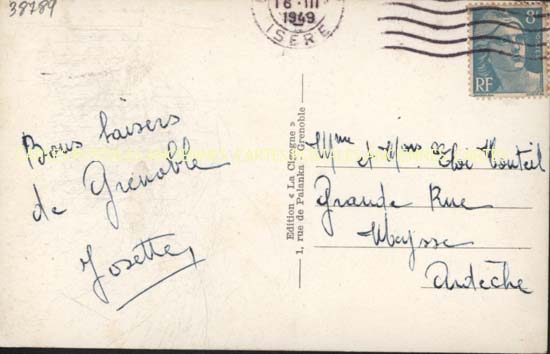 38789
16 III
1949
ISERE
8F
RF
Bons baisers
de Grenoble
Josette
Edition « La Cigogne »
1, rue de Palanka - Grenoble
Mme et Mons Eloi Monteil
Grande Rue
Meysse
Ardèche